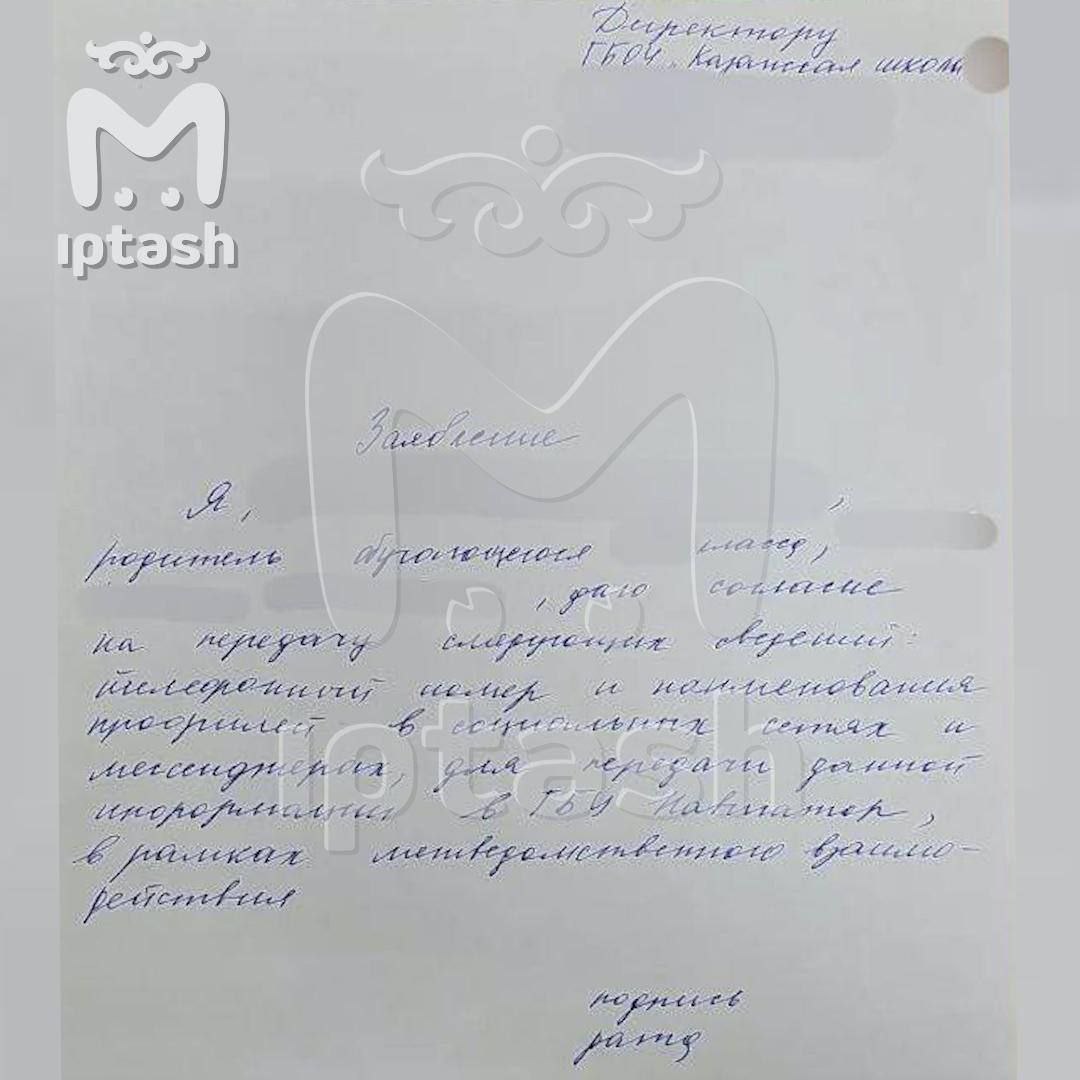 Mıptash
Директору
ГБОУ "Казанская школа
Mıptash
Заявление
Я, ,
родитель обучающегося класса,
, даю согласие
на передачу следующих сведений:
телефонный номер и наименования
профилей в социальных сетях и
мессенджерах, для передачи данной
информации в ГБУ Навигатор,
в рамках межведомственного взаимо-
действия
подпись
дата